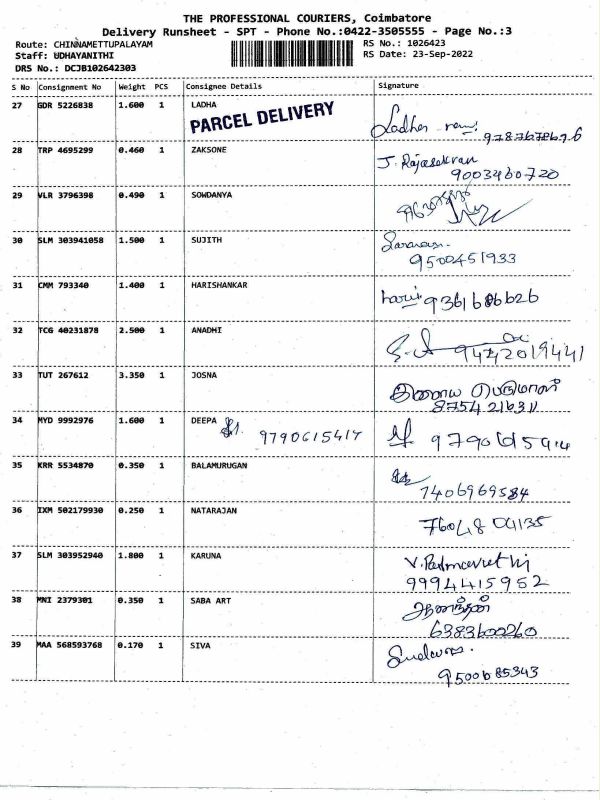 THE PROFESSIONAL COURIERS, Coimbatore
Delivery Runsheet - SPT - Phone No.:0422-3505555 - Page No.:3
Route: CHINNAMETTUPALAYAM
Staff: UDHAYANITHI
DRS No.: DCJB102642303
RS No.: 1026423
RS Date: 23-Sep-2022
S No Consignment No Weight PCS Consignee Details Signature
27 GDR 5226838 1.600 1 LADHA
PARCEL DELIVERY
9787678696
28 TRP 4695299 0.460 1 ZAKSONE
J. Rajasekran
9003460720
29 VLR 3796398 0.490 1 SOWDANYA
30 SLM 303941058 1.500 1 SUJITH
9500451933
31 CMM 793340 1.400 1 HARISHANKAR
harii 9361686626
32 TCG 40231878 2.500 1 ANADHI
9442019441
33 TUT 267612 3.350 1 JOSNA
பெருமாள்
8754216311
34 MYD 9992976 1.600 1 DEEPA
9790615414
35 KRR 5534870 0.350 1 BALAMURUGAN
7406969584
36 IXM 502179930 0.250 1 NATARAJAN
7604804135
37 SLM 303952940 1.800 1 KARUNA
9994415952
38 MNI 2379301 0.350 1 SABA ART
ஆனந்தன்
6383600260
39 MAA 568593768 0.170 1 SIVA
9500685343